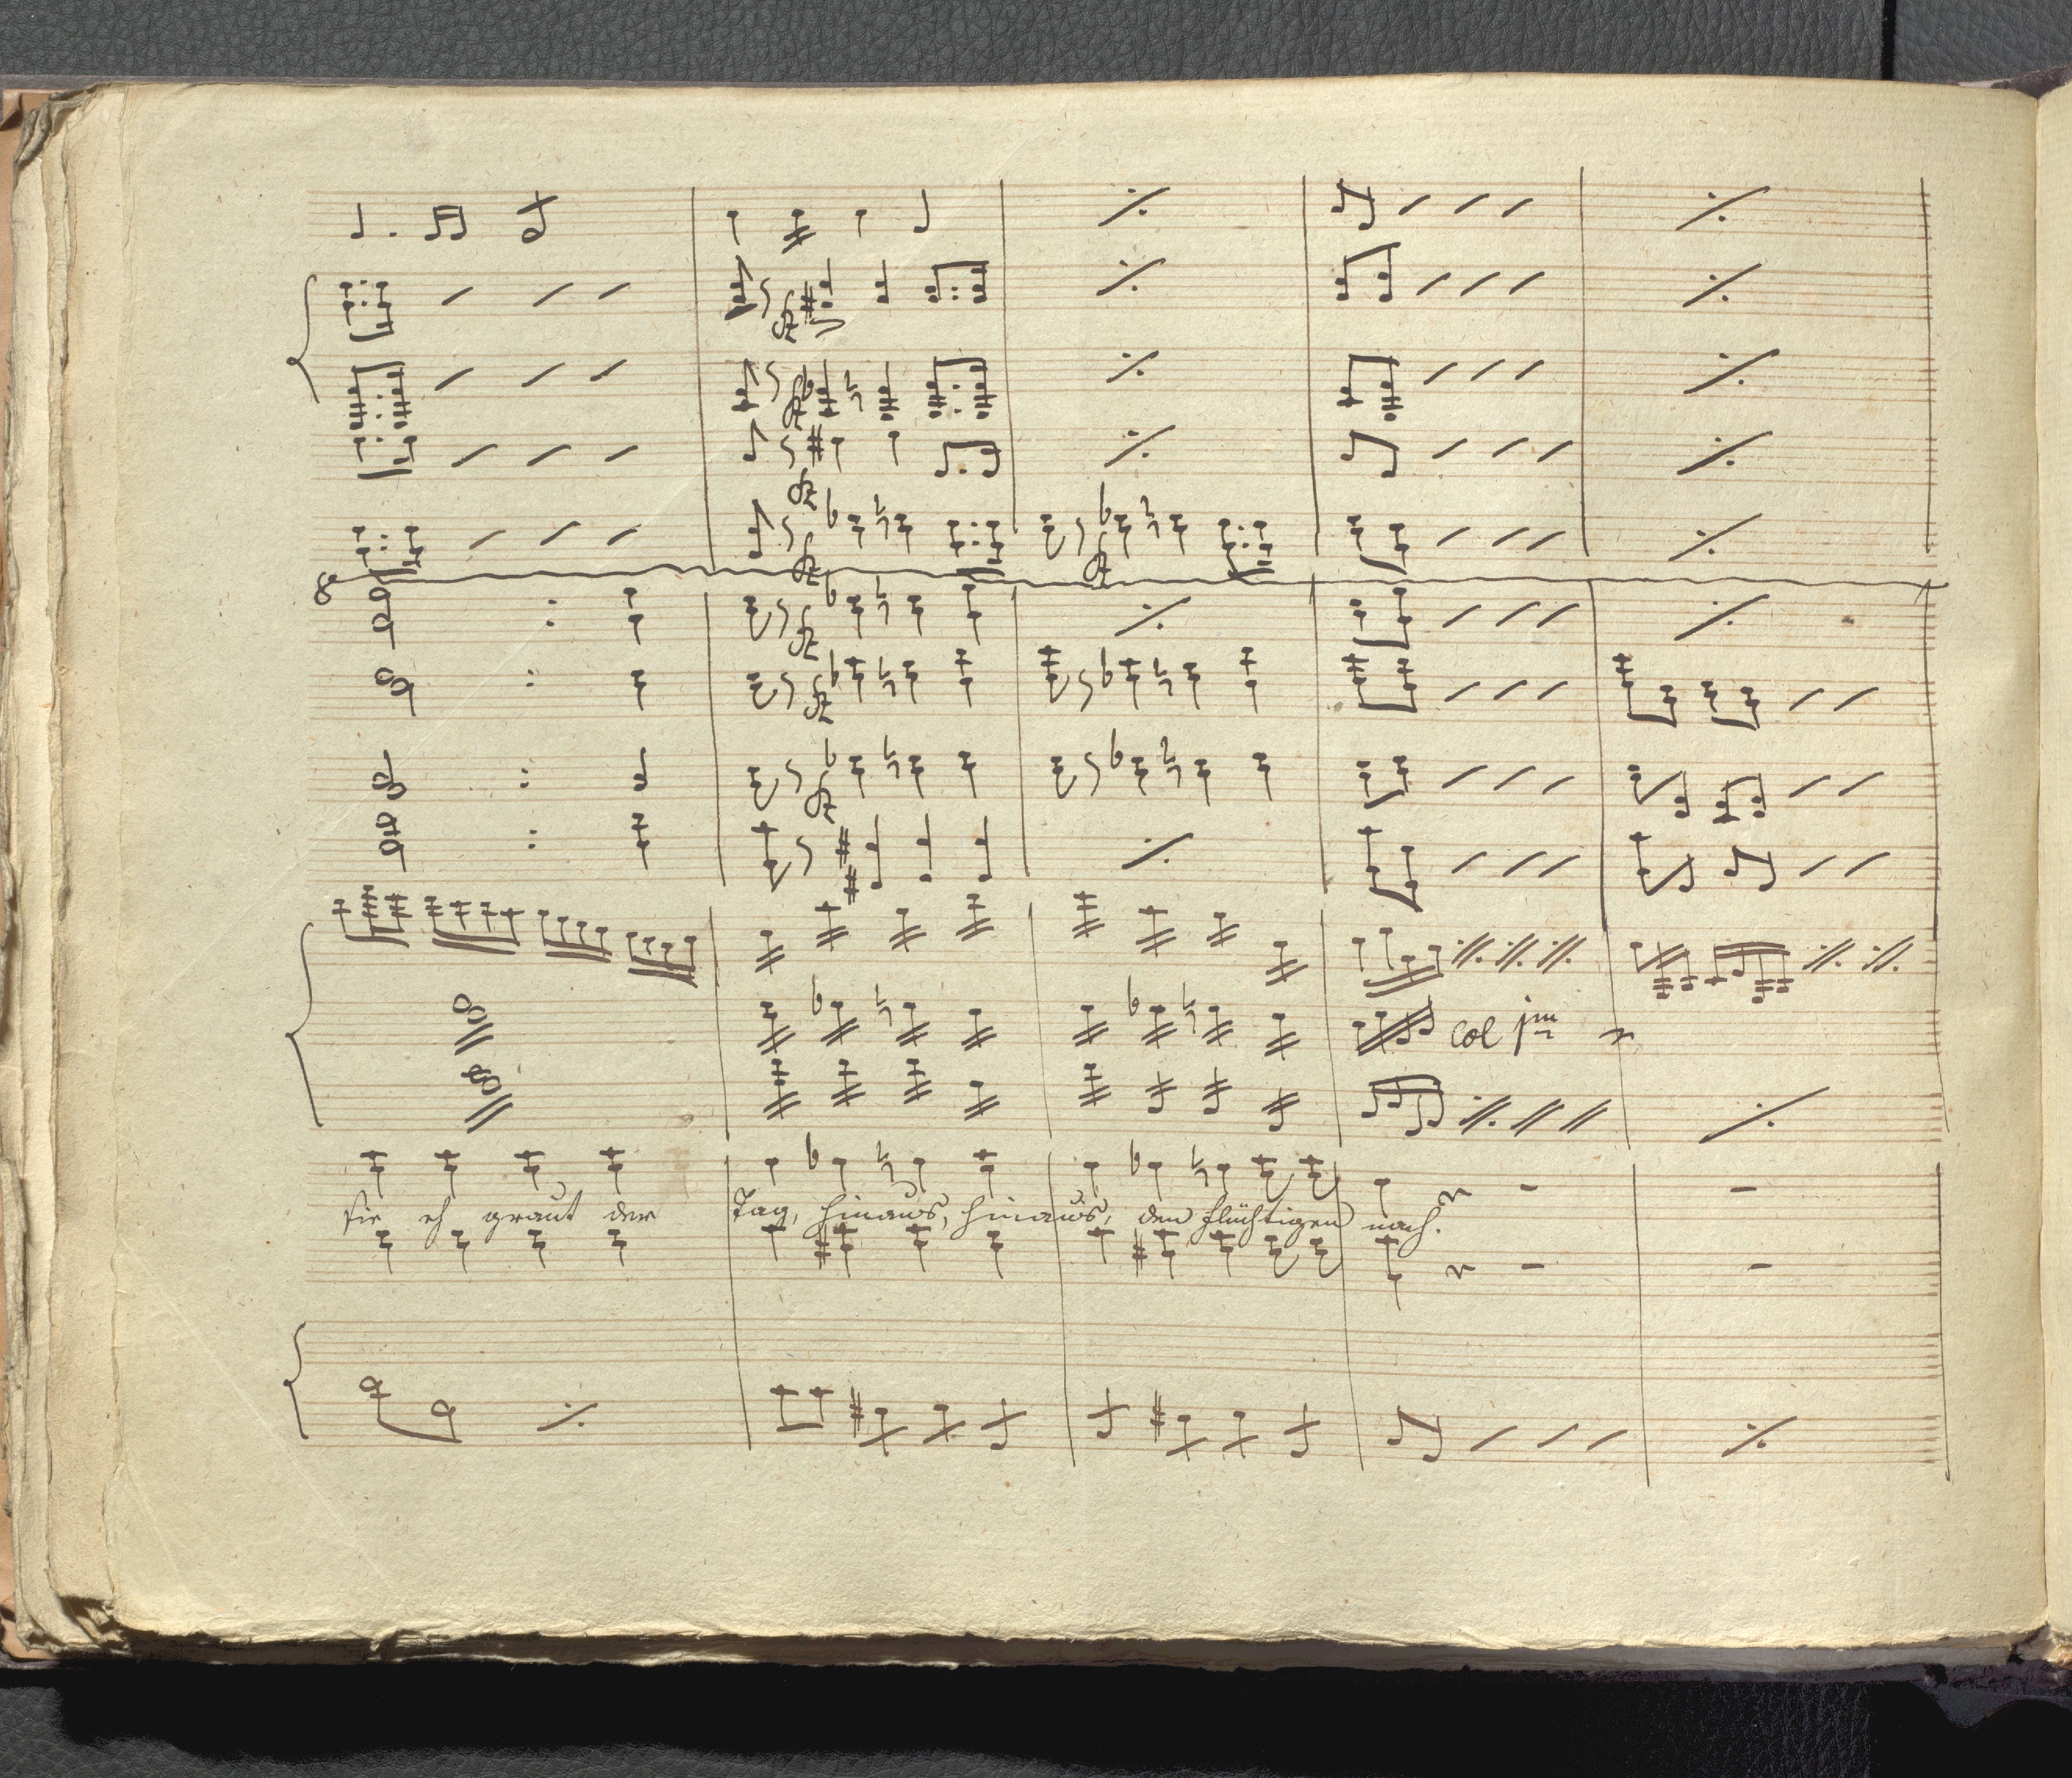 8
col 1mo
sie eh graut der Tag, hinaus, hinaus, den flüchtigen nach.